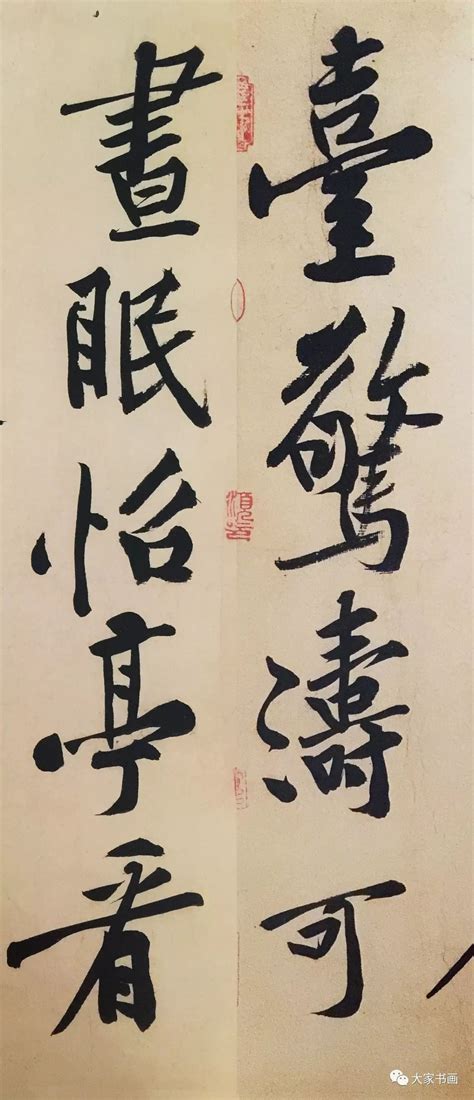 臺驚濤可
晝眠怡亭看
大家书画